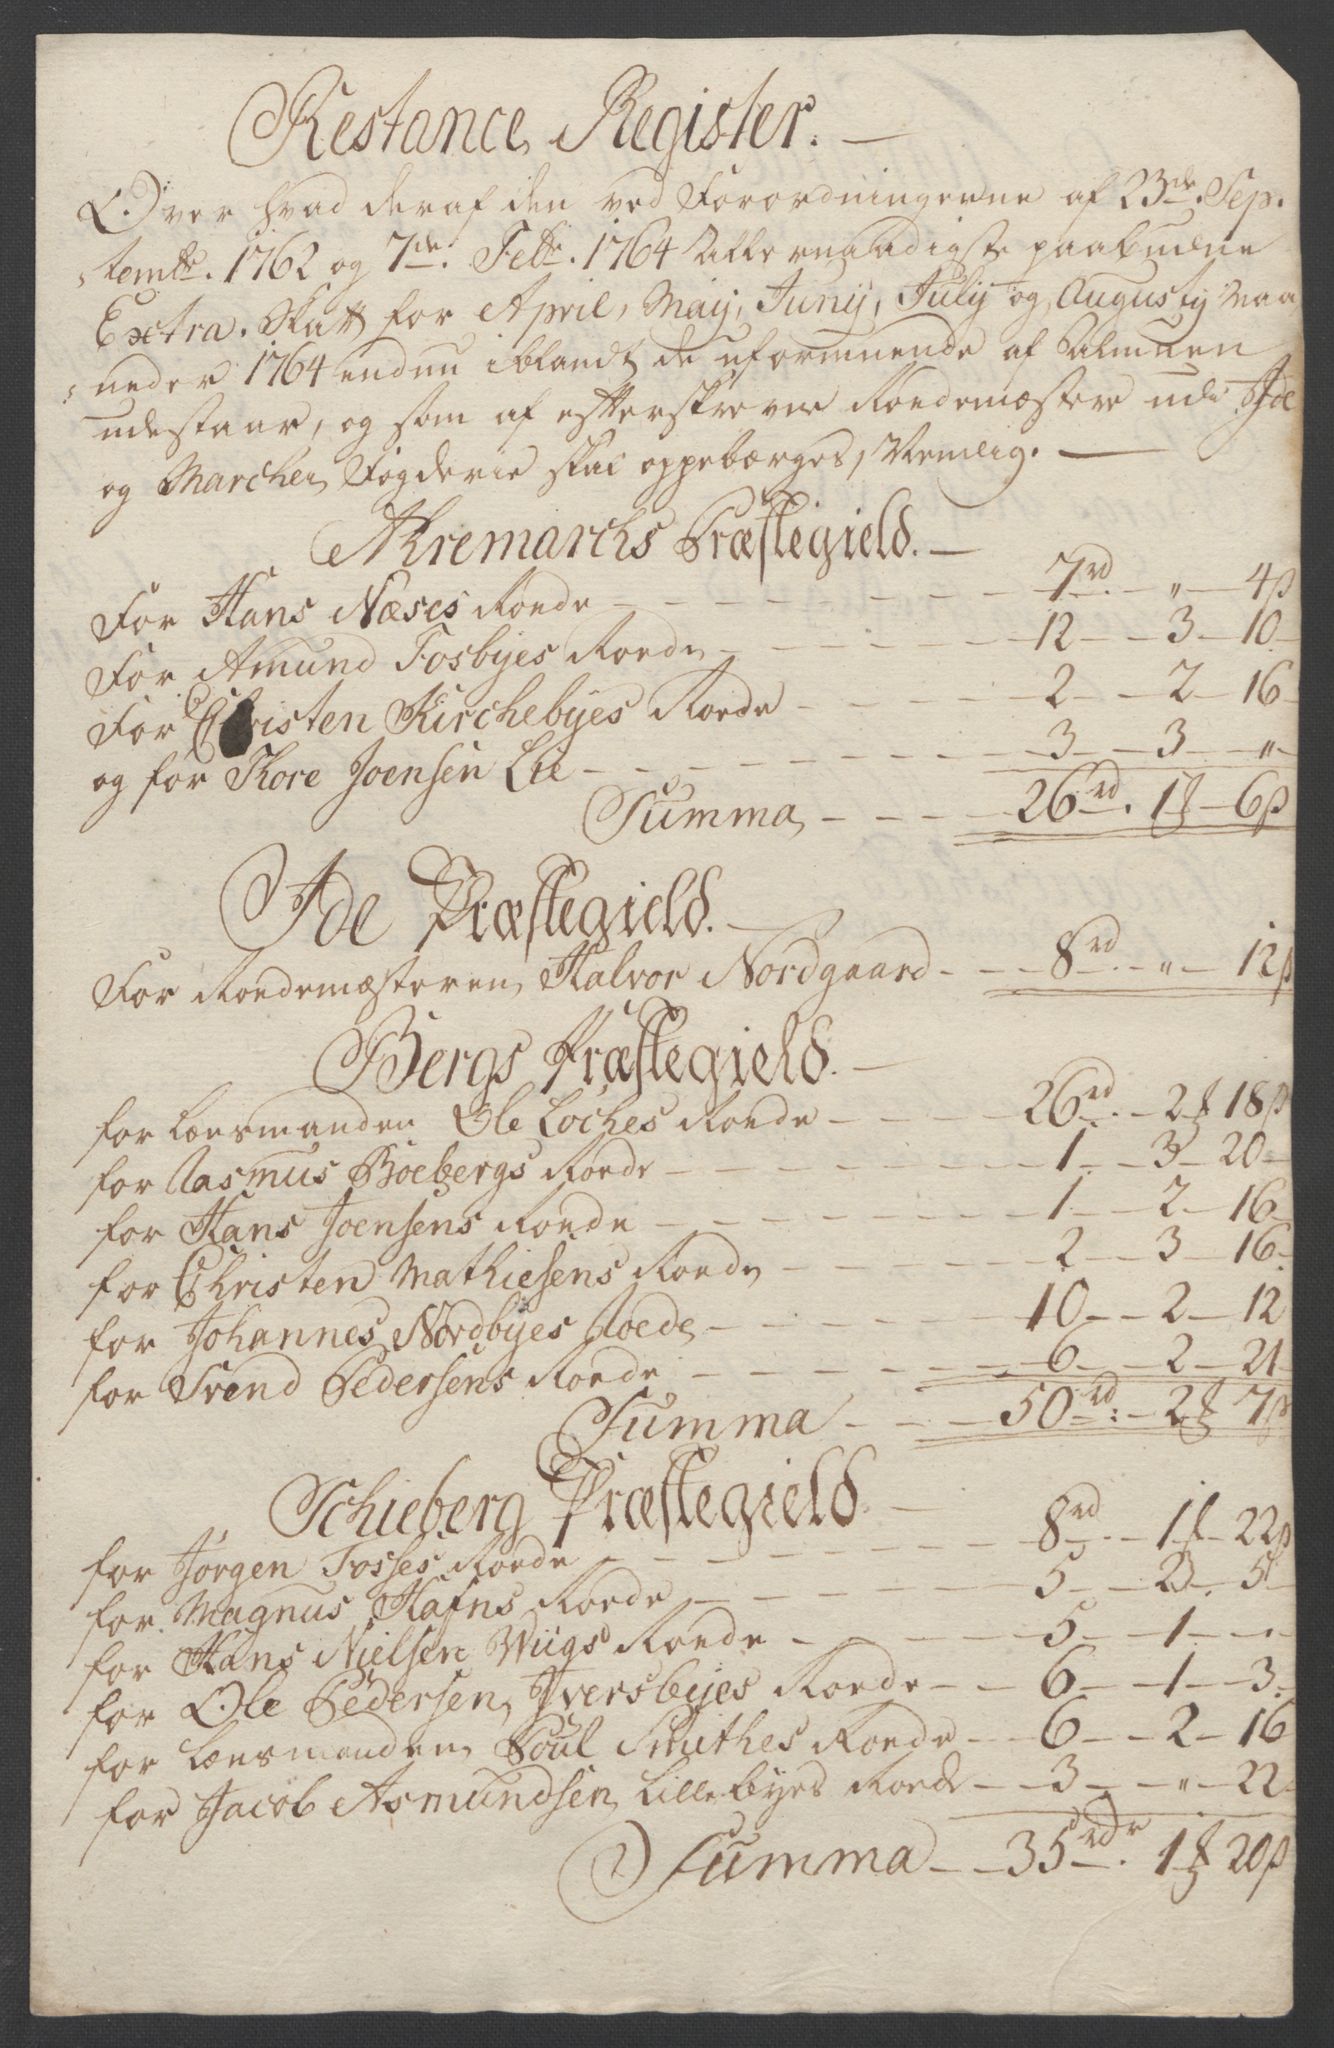 Restance Register. —
Over hvad deraf den ved Forordningerne af 23de Sep-
tembr. 1762 og 7de Febr. 1764 Allernaadigste paabudne
Extra. Skatt for April, Maij, Junij, Julij og Augustij Maa
neder 1764 endnu iblandt de uformuende af Almuen
udestaar, og som af efterskrevne Roedemæstere udi Ide
og Marchen Fogderie skal oppebærges, Nemlig. —
Akremarchs Præstegield. —
For Hans Næses Roede — 7rd. — " — 4ß
For Amund Fosbyes Roede — 12 — 3 — 10
For Christen Kirchebyes Roede — 2 — 2 — 16
og for Thore Joensen Lie — 3 — 3 — "
Summa — 26rd. 1₰ — 6ß
Ide Præstegield. —
For Roedemæsteren Halvor Nordgaard — 8rd. — " — 12ß
Bergs Præstegield. —
for Lensmanden Ole Loches Roede — 26rd. — 2₰ 18ß
for Rasmus Boebergs Roede — 1 — 3 — 20
for Hans Joensens Roede — 1 — 2 — 16
for Christen Mathiesens Roede — 2 — 3 — 16
for Johannes Nordbyes Roede — 10 — 2 — 12
for Svend Pedersens Roede — 6 — 2 — 21
Summa — 50rd: — 2₰ 7ß
Schieberg Præstegield. —
for Jørgen Fosses Roede — 8rd. — 1₰ — 22ß
for Magnus Hafns Roede — 5 — 23. 5
for Hans Nielsen Wiigs Roede — 5 — 1 — "
for Ole Pedersen Iversbyes Roede — 6 — 1 — 3
for Lensmanden Poul Smithes Roede — 6 — 2 — 16
for Jacob Asmundsen Lillebyes Roede — 3 — " — 22
Summa — 35rdr. 1₰ 20ß